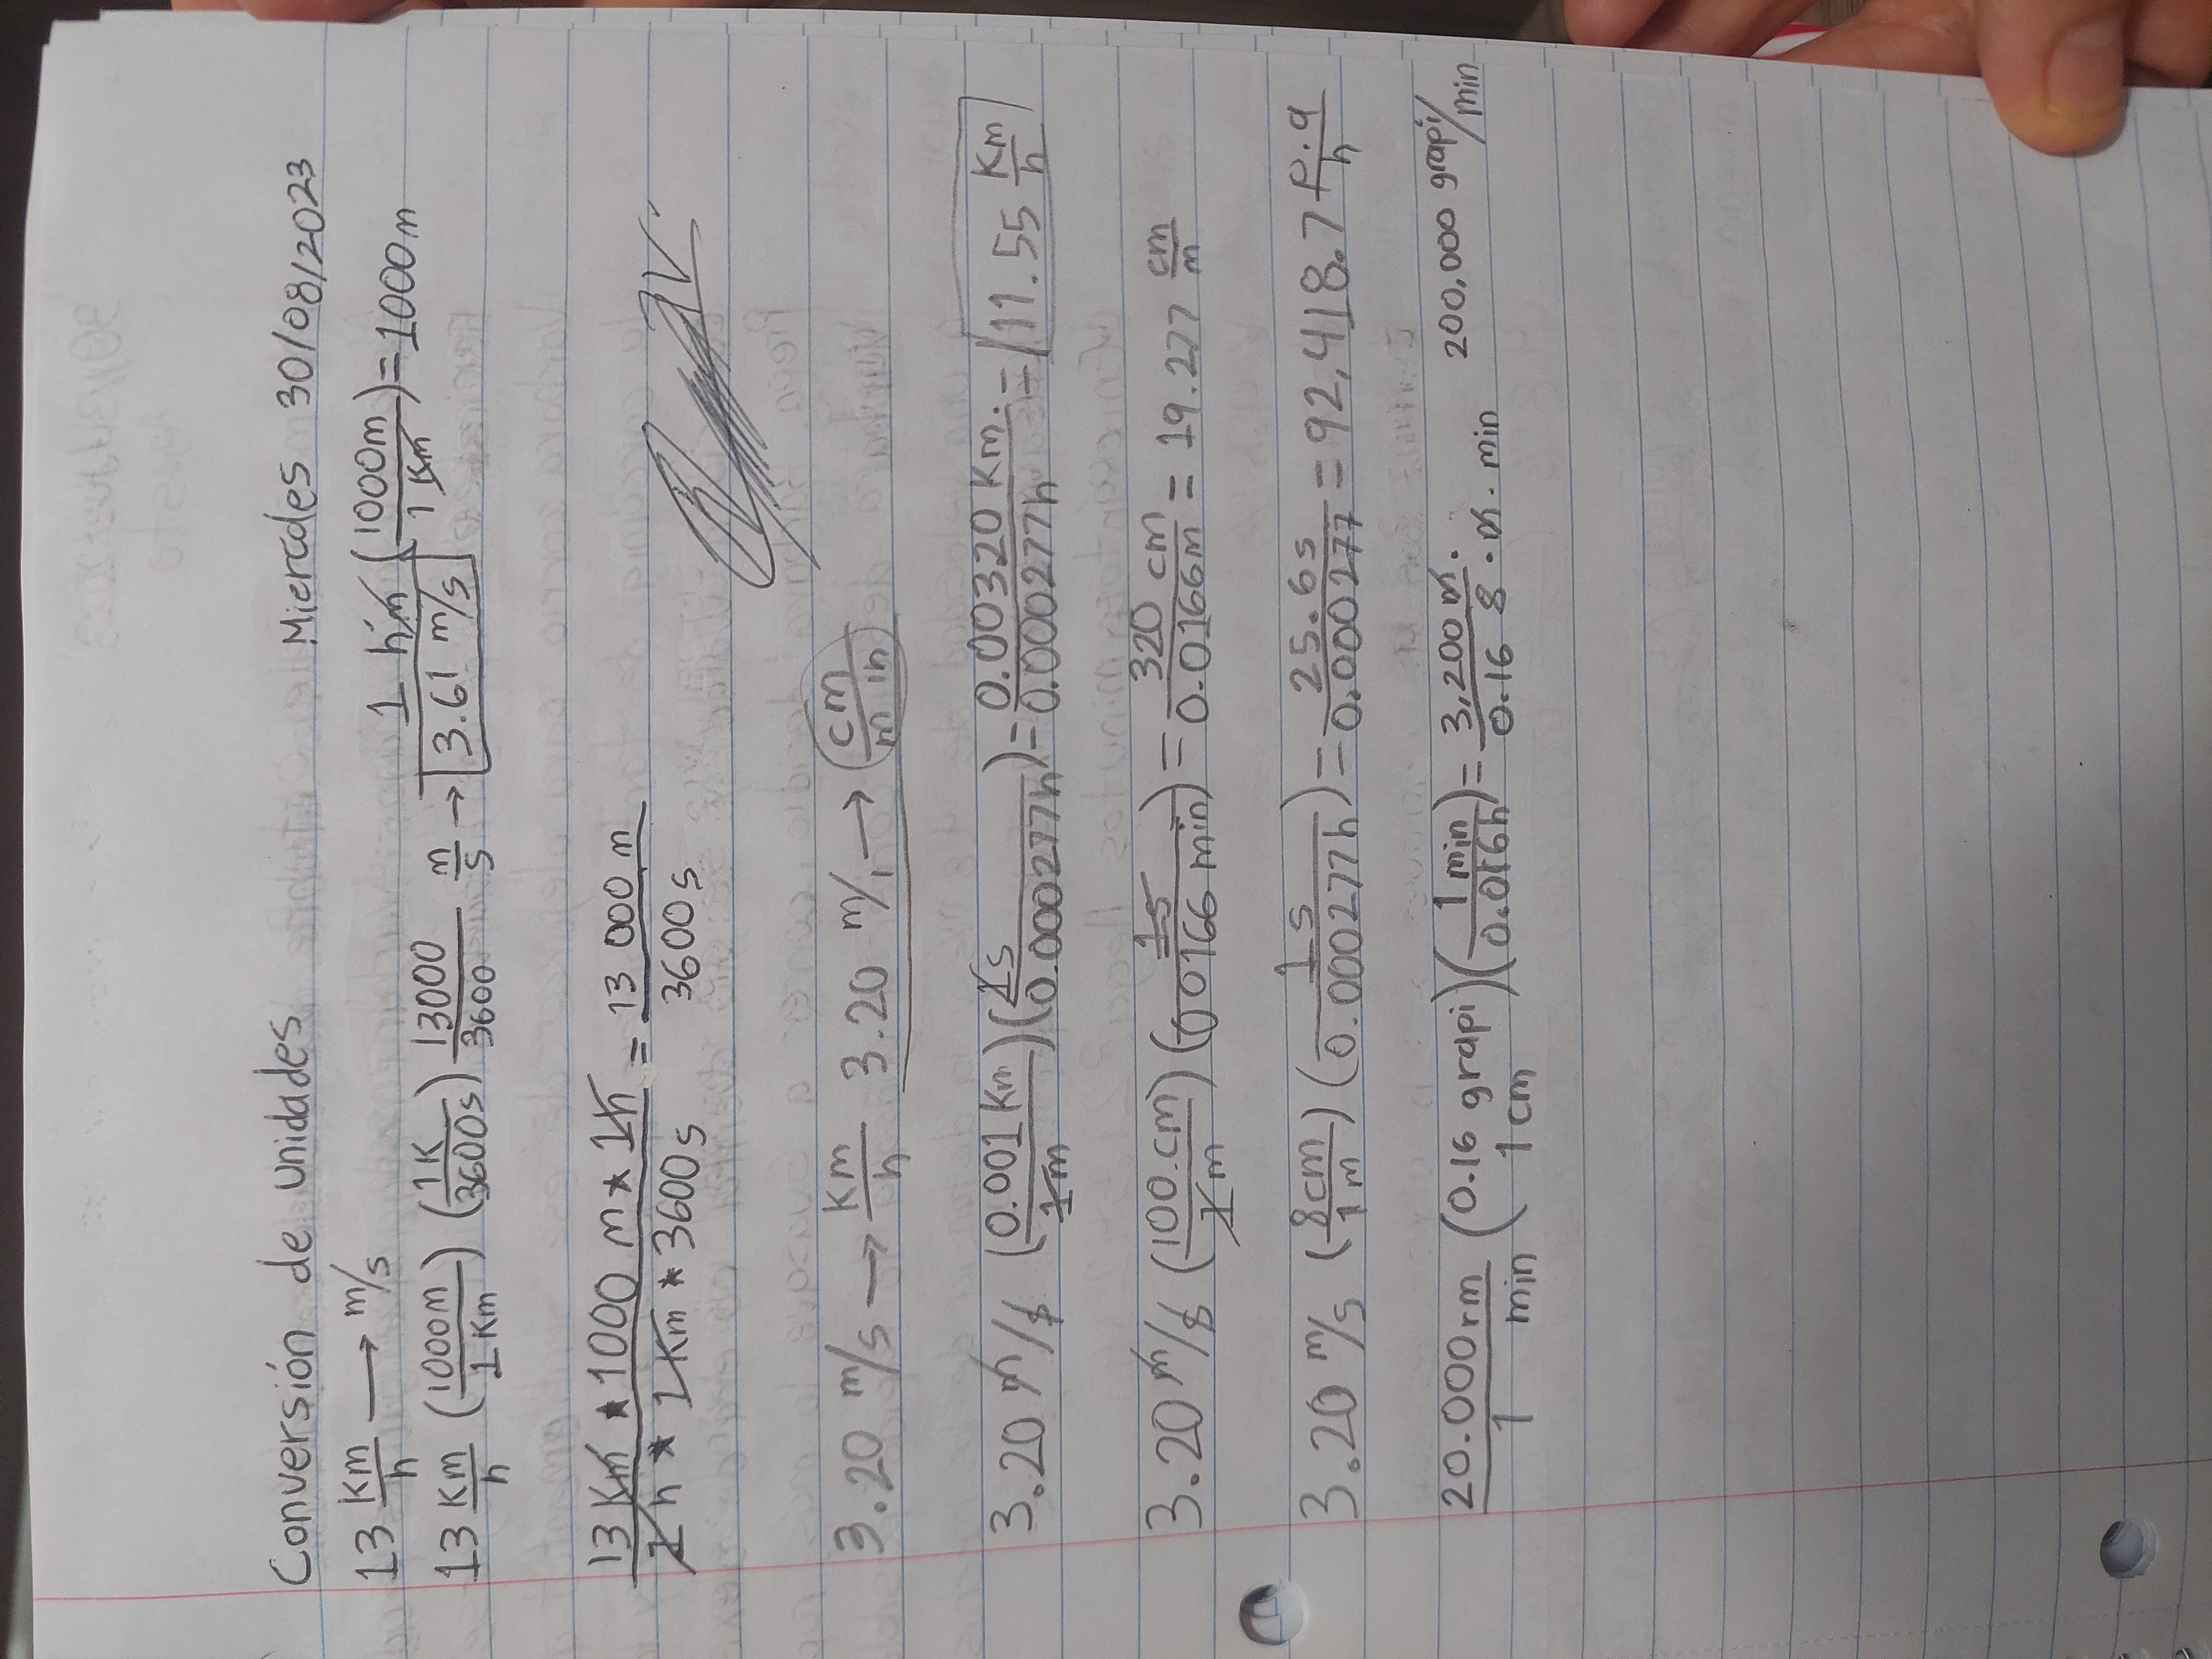 Conversión de unidades Miercoles 30/08/2023
13 Km/h → m/s 1 hm (1000m/1 Km) = 1000m
13 Km/h (1000m/1 Km) (1K/3600s) 13000/3600 m/s → 3.61 m/s
13 Km * 1000 m * 1h = 13 000 m
1 h * 1Km * 3600 s 3600 s
3.20 m/s → Km/h 3.20 m/ → (cm/min)
3.20 m/s (0.001 Km/1m) (1s/0.000277h) = 0.00320 Km./0.000277h = 11.55 Km/h
3.20 m/s (100.cm/1m) (1s/0.0166 min) = 320 cm/0.0166m = 19.277 cm/m
3.20 m/s (8cm/1m) (1s/0.000277h) = 25.6s/0.000277 = 92,418.7 P.q/h
20.000rm/1 min (0.16 grapi/1cm) (1min/0.016h) = 3,200 m./0.16 8 . m . min 200,000 grapi/min